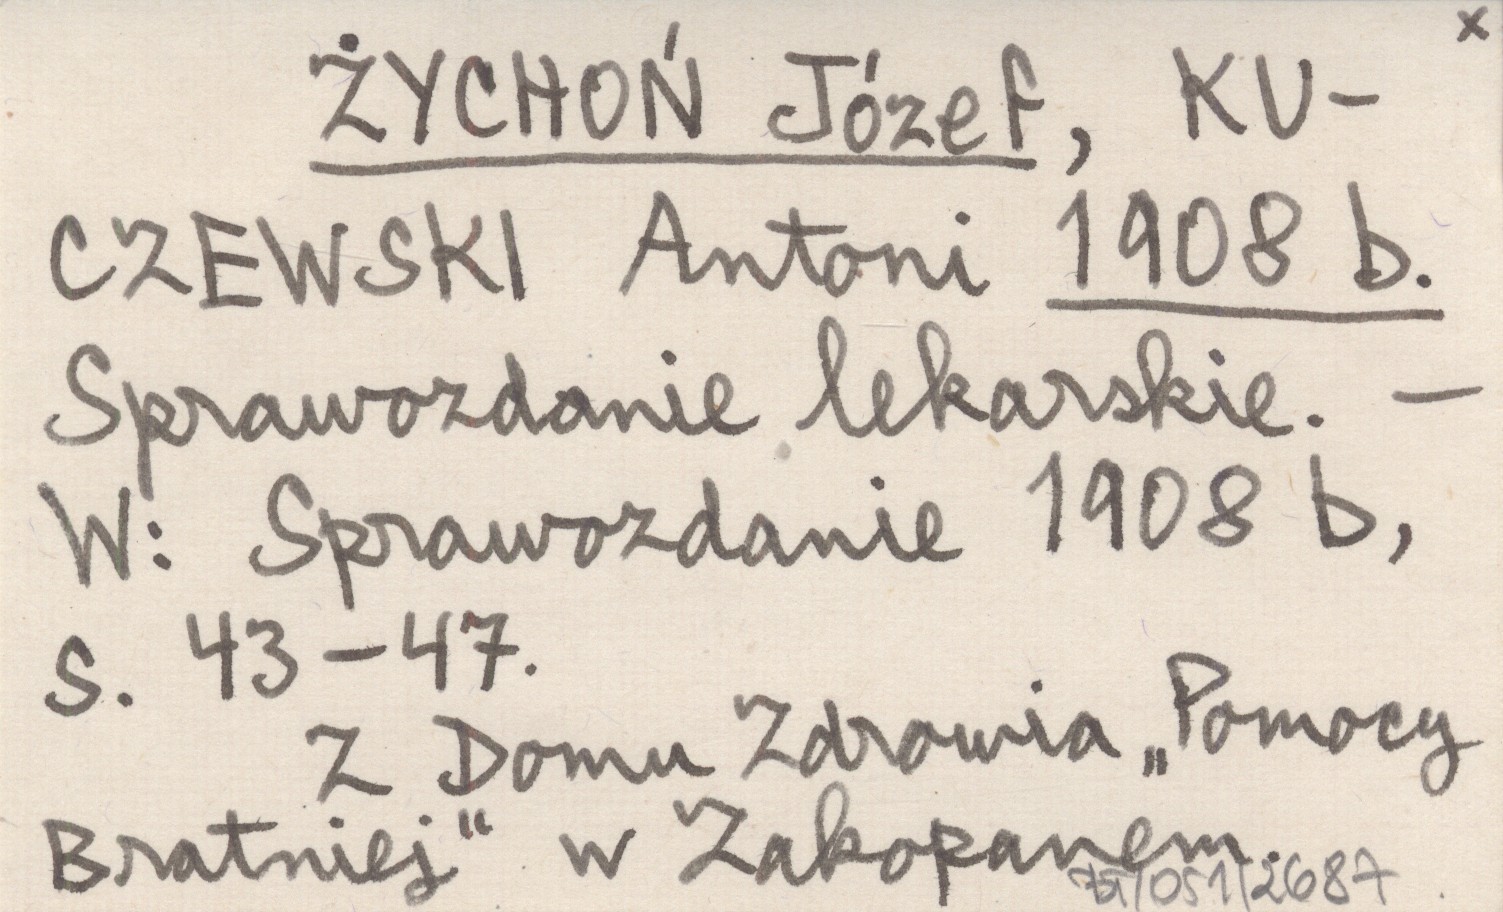 x
ŻYCHOŃ Józef, KU-
CZEWSKI Antoni 1908 b.
Sprawozdanie lekarskie. –
W: Sprawozdanie 1908 b,
s. 43–47.
Z Domu Zdrowia „Pomocy
Bratniej“ w Zakopanem.
/051/2687